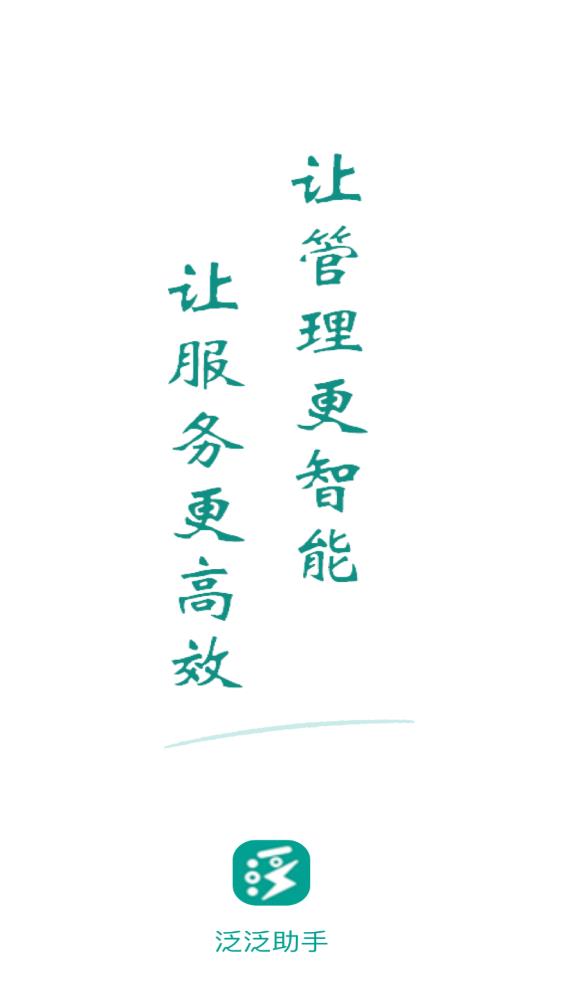 让管理更智能
让服务更高效
泛
泛泛助手